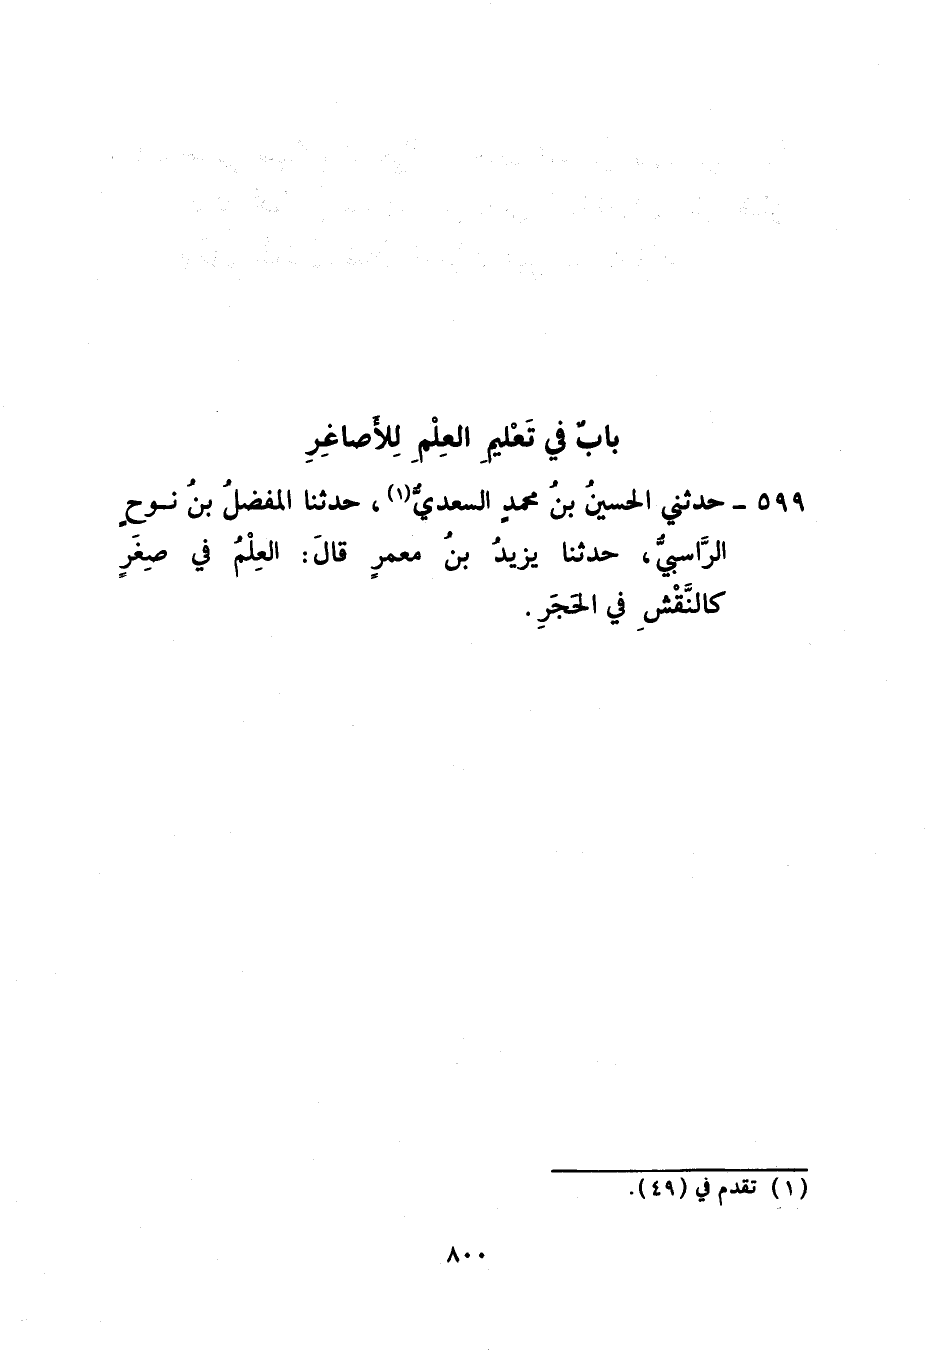 بابٌ في تَعْليمِ العِلْمِ لِلأَصاغِرِ
٥٩٩ ـ حدثني الحسينُ بنُ محمدٍ السعديُّ(١)، حدثنا المفضلُ بنُ نـوحٍ
الرَّاسبيُّ، حدثنا يزيدُ بنُ معمرٍ قالَ: العِلْمُ في صِغَرٍ
كالنَّقْشِ في الحَجَرِ.
(١) تقدم في (٤٩).
٨٠٠